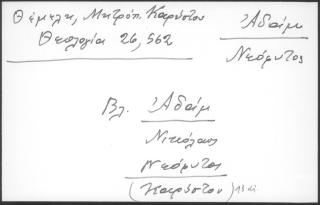 Θέμελη, Μητρόπ. Καρύστου
Θεολογία 26, 562
Ἀδάμ
Νεόφυτος
Βλ. Ἀδάμ
Νικόλαος
Νεόφυτος
(Καρύστου)